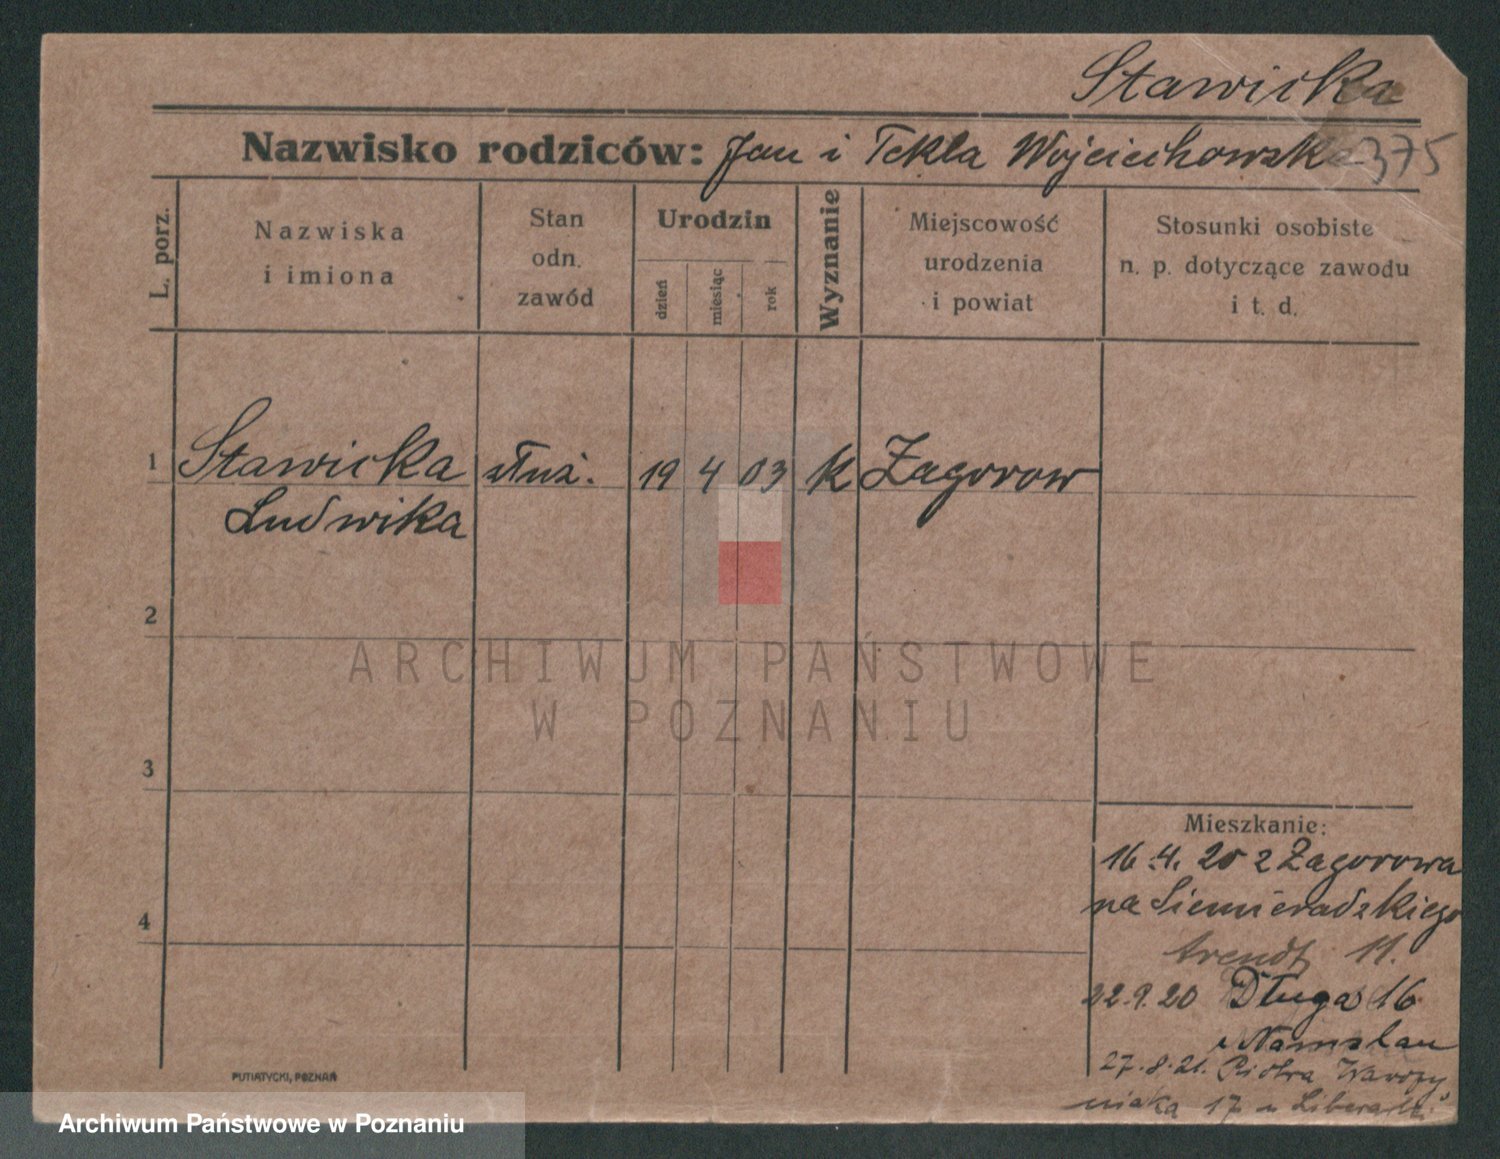 Stawicka
Nazwisko rodziców: Jan i Tekla Wojciechowska 375
L. porz.
Nazwiska
i imiona
Stan
odn.
zawód
Urodzin
dzień
miesiąc
rok
Wyznanie
Miejscowość
urodzenia
i powiat
Stosunki osobiste
n. p. dotyczące zawodu
i t. d.
1 Stawicka służ. 19 4 03 k Zagorow
Ludwika
2
ARCHIWUM PAŃSTWOWE
W POZNANIU
3
Mieszkanie:
16.4.20 z Zagorowa
na Siemieradzkiego
4
11.
22.9.20 Długa 16
u Namslau
27.8.21. Piotra Wawrzy
niaka 17 u
PUTIATYCKI, POZNAŃ
Archiwum Państwowe w Poznaniu